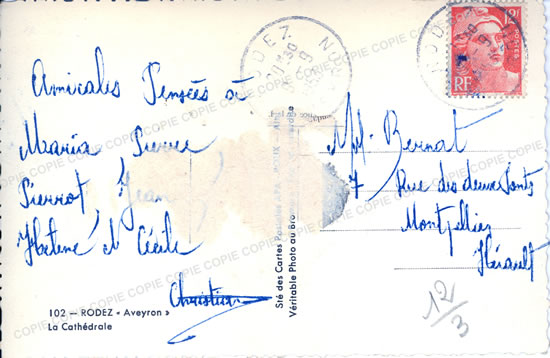 Amicales Pensées à
Maria, Pierre
Pierrot, Jean
Hélène et Cécile
Christian
102 — RODEZ « Aveyron »
La Cathédrale
Sté des Cartes
Véritable Photo au Bro
RODEZ
12F
RF
Bernat
7 Rue des deux Ponts
Montpellier
Hérault
12/3
COPIE COPIE COPIE COPIE